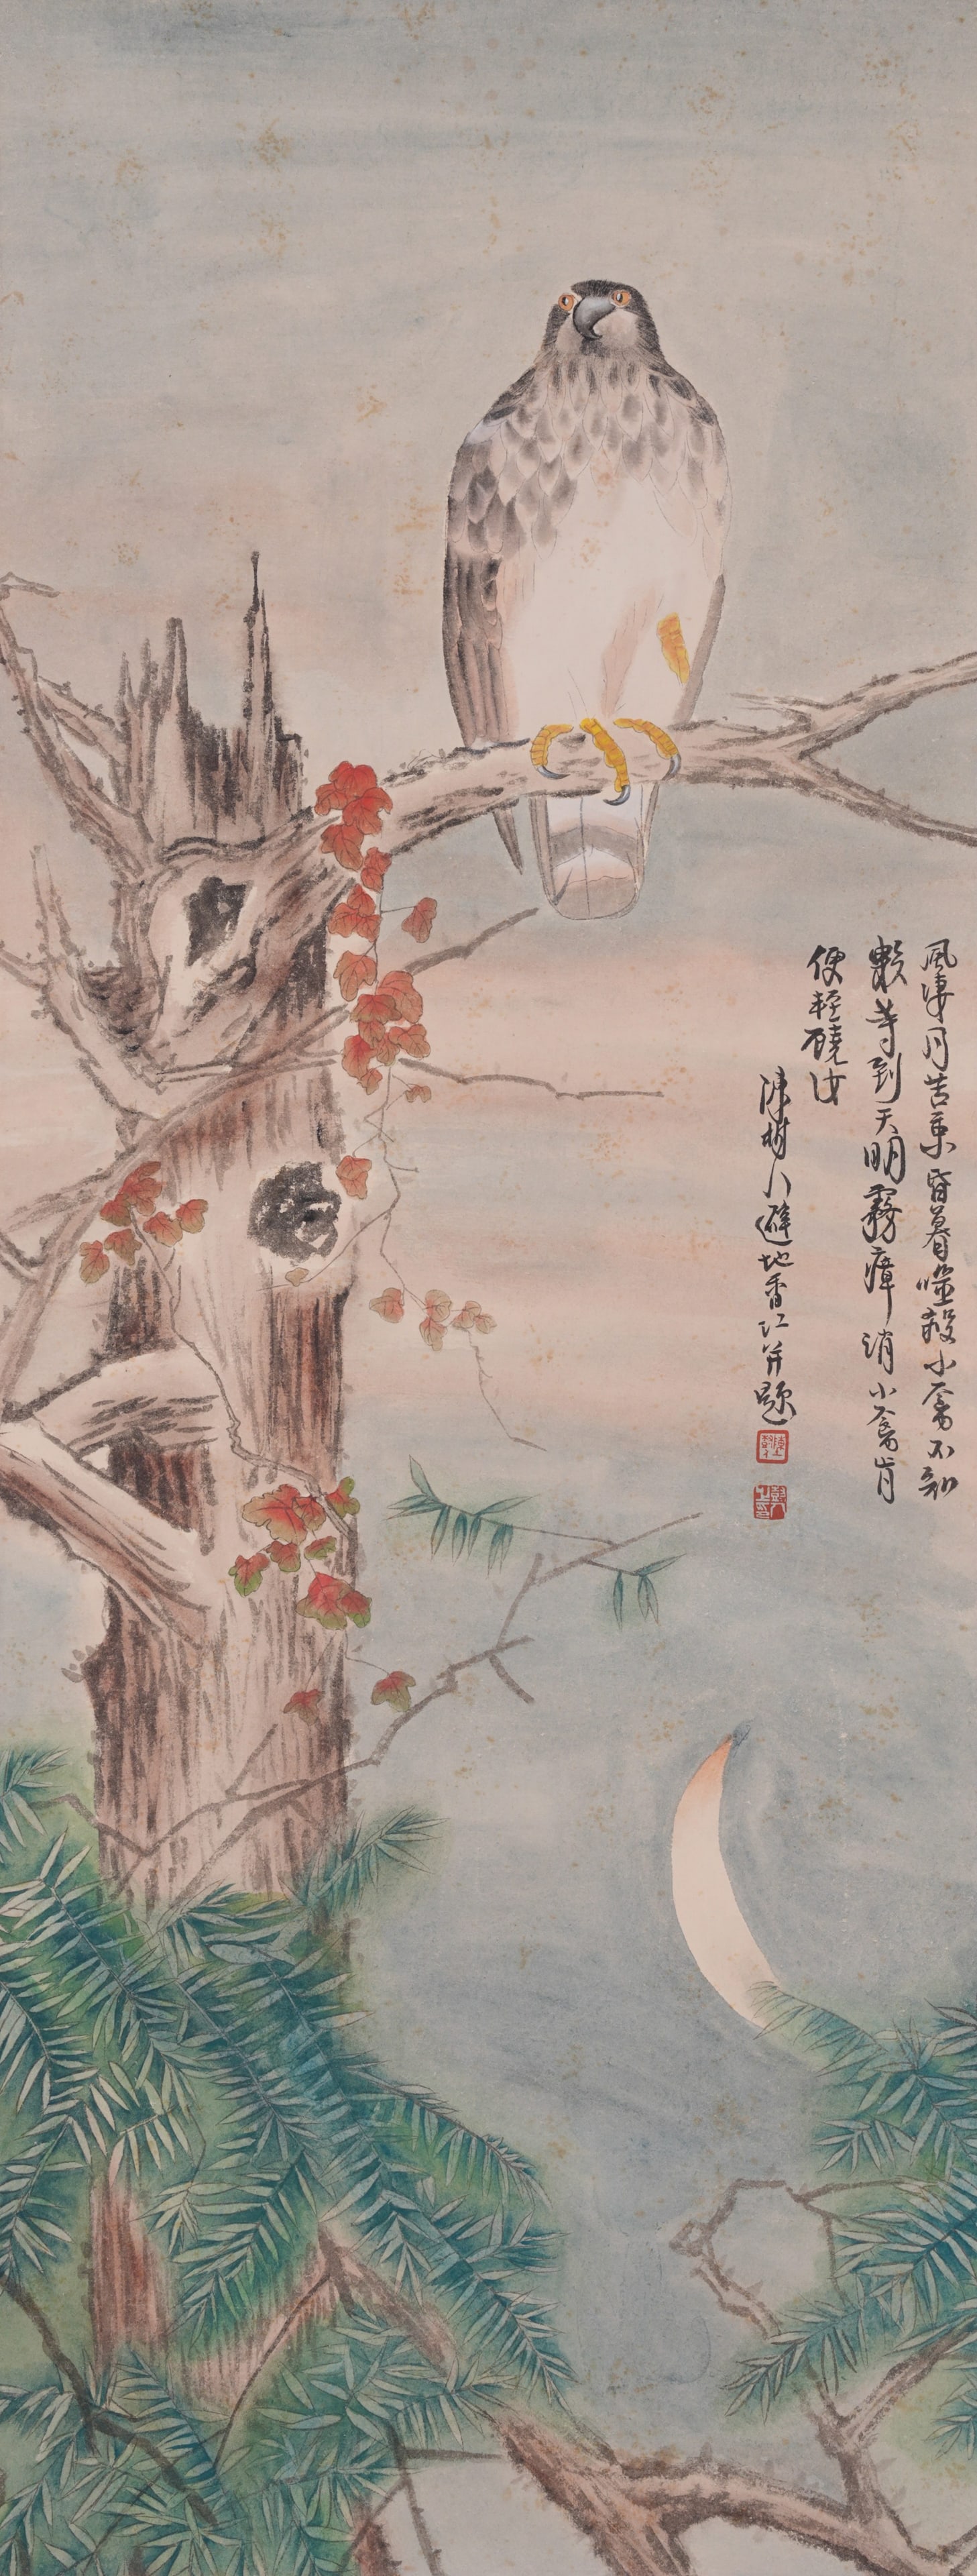 風凄月苦乘昏暮噬殺小禽不知
數等到天明霧瘴消小禽肯
便輕饒汝
陳樹人避地香江并題